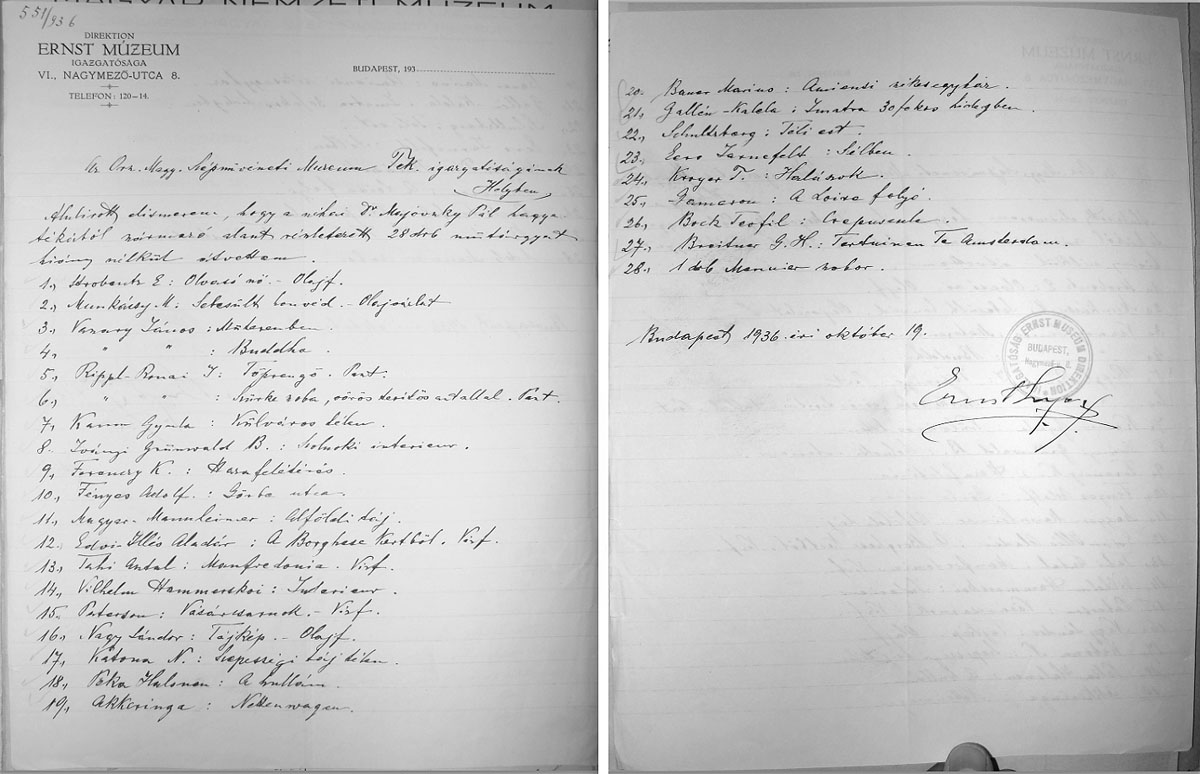 551/936
DIREKTION
ERNST MÚZEUM
IGAZGATÓSÁGA
VI., NAGYMEZŐ-UTCA 8.
TELEFON: 120–14.
BUDAPEST, 193
Az Orz. Magy. Szépművészeti Muzeum Tek. igazgatóságának
Helyben
Alulirott elismerem, hogy a néhai Dr Majovszky Pál hagya
tékától származó alant részletezett 28 drb műtárgyat
hiány nélkül átvettem.
1., Strobentz E: Olvasó nő. – Olajf.
2., Munkácsy M: Sebesült honvéd. – Olajvázlat
3., Vaszary János: Műteremben.
4., " " : Buddha.
5., Rippl-Ronai J: Töprengő – Past.
6., " " : Szürke szoba vörös terítős asztallal. Past.
7., Kann Gyula: Külváros télen
8. Iványi Grünwald B.: Szolnoki interieur.
9., Ferenczy K.: Hazafelé
10., Fényes Adolf.: Görbe utca
11., Magyar-Mannheimer: Alföldi táj.
12., Edvi Illés Aladár: A Borghese Kertből. Vizf.
13., Tahi Antal: Manfredonia. Vizf.
14., Vilhelm Hammerskoi: Interieur.
15., Paterson: Vásárcsarnok. – Vizf.
16., Nagy Sándor: Tájkép. – Olajf.
17., Katona N.: Szepességi táj télen.
18., Peka Halonen: A hullám.
19., Akkeringa: Nettenwagen.
20. Bauer Marius: Amiensi székesegyház.
21., Gallén-Kalela: Imatra 30 fokos hidegben.
22., Schultzberg: Téli est.
23., Eero Jarnefelt: Szélben.
24., Kroyer T.: Halászok.
25., Dameron: A Loire folyó.
26., Bock Teofil: Crepuscule.
27., Breitner G. H.: Te Amsterdam.
28., 1 drb Meunier szobor.
Budapest 1936. évi október 19.
IGAZGATÓSÁG ERNST MUSEUM DIREKTION
BUDAPEST,
Nagymező-u. 8.
Ernst Lajos